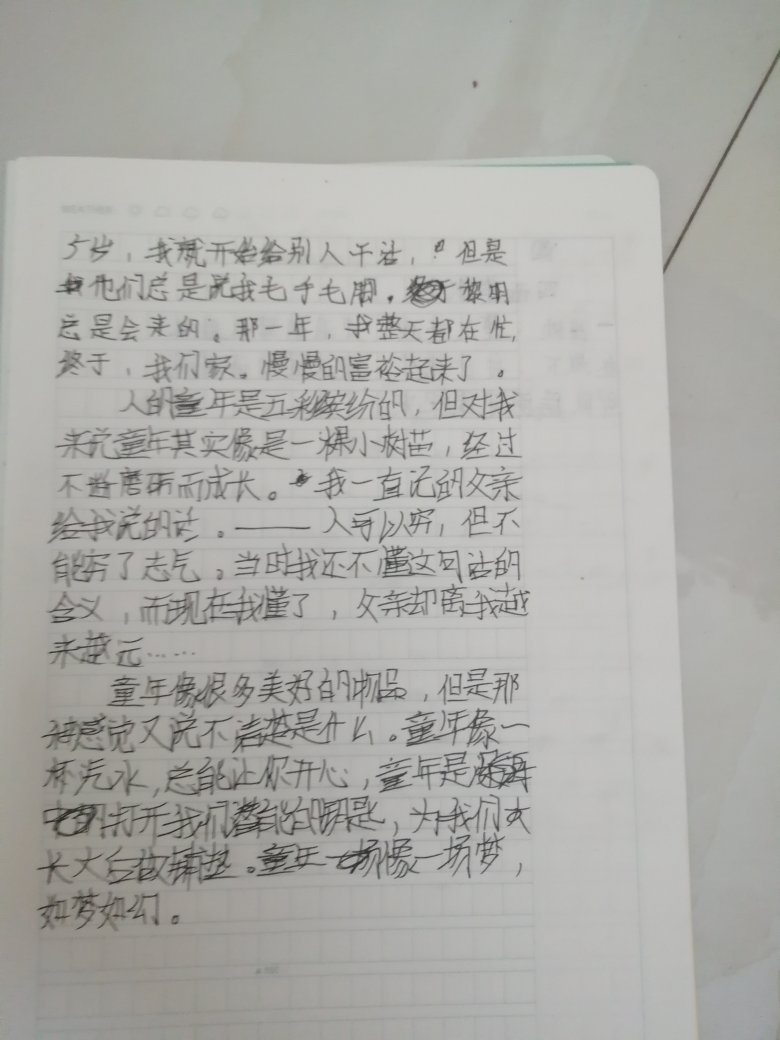 5岁，我就开始给别人干活，但是
他们总是说我毛手毛脚。黎明
总是会来的。那一年，我整天都在忙，
终于，我们家。慢慢的富裕起来了。
人的童年是五彩缤纷的，但对我
来说童年其实像是一棵小树苗，经过
不断磨砺而成长。我一直记的父亲
给我说的话。——人可以穷，但不
能穷了志气。当时我还不懂这句话的
含义，而现在我懂了，父亲却离我越
来越元……
童年像很多美好的物品，但是那
种感觉又说不清楚是什么。童年像一
杯汽水，总能让你开心，童年是
打开我们潜能的钥匙，为我们
长大后做铺垫。童年像一场梦，
如梦如幻。